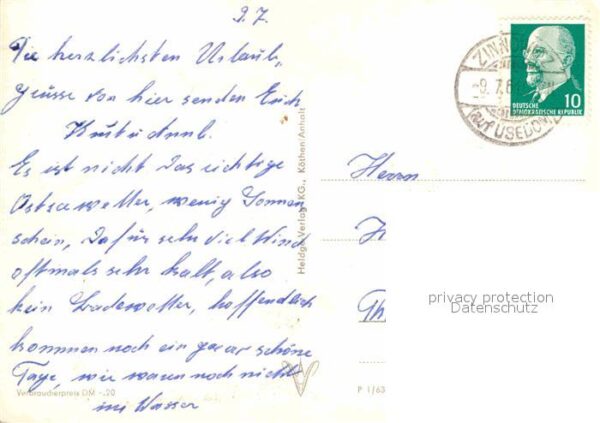 9. 7.
Die herzlichsten Urlaub,
grüsse von hier senden Euch
Es ist nicht das richtige
Ostseewetter, wenig Sonnen
schein, dafür sehr viel Wind
oftmals sehr kalt, also
kein Badewetter, hoffendlich
kommen noch ein paar schöne
Tage, wir waren noch nicht
im Wasser
Verbraucherpreis DM -.20
Heldge-Verlag KG., Köthen/Anhalt
P 1/63
ZINNO
9. 7. 6
auf USEDOM
DEUTSCHE
DEMOKRATISCHE REPUBLIK
10
Herrn
privacy protection
Datenschutz